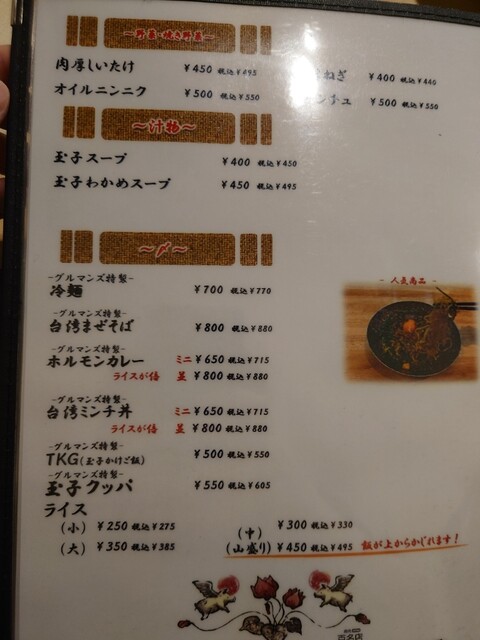 ～野菜・焼き野菜～
肉厚しいたけ ¥450 税込¥495
ねぎ ¥400 税込¥440
オイルニンニク ¥500 税込¥550
ンチュ ¥500 税込¥550
～汁物～
玉子スープ ¥400 税込¥450
玉子わかめスープ ¥450 税込¥495
～〆～
-グルマンズ特製-
冷麺 ¥700 税込¥770
-グルマンズ特製-
台湾まぜそば ¥800 税込¥880
- 人気商品 -
-グルマンズ特製-
ホルモンカレー ミニ ¥650 税込¥715
ライスが倍 並 ¥800 税込¥880
-グルマンズ特製-
台湾ミンチ丼 ミニ ¥650 税込¥715
ライスが倍 並 ¥800 税込¥880
-グルマンズ特製-
TKG(玉子かけご飯) ¥500 税込¥550
-グルマンズ特製-
玉子クッパ ¥550 税込¥605
ライス
(小) ¥250 税込¥275
(中) ¥300 税込¥330
(大) ¥350 税込¥385
(山盛り) ¥450 税込¥495 飯が上からかじれます！